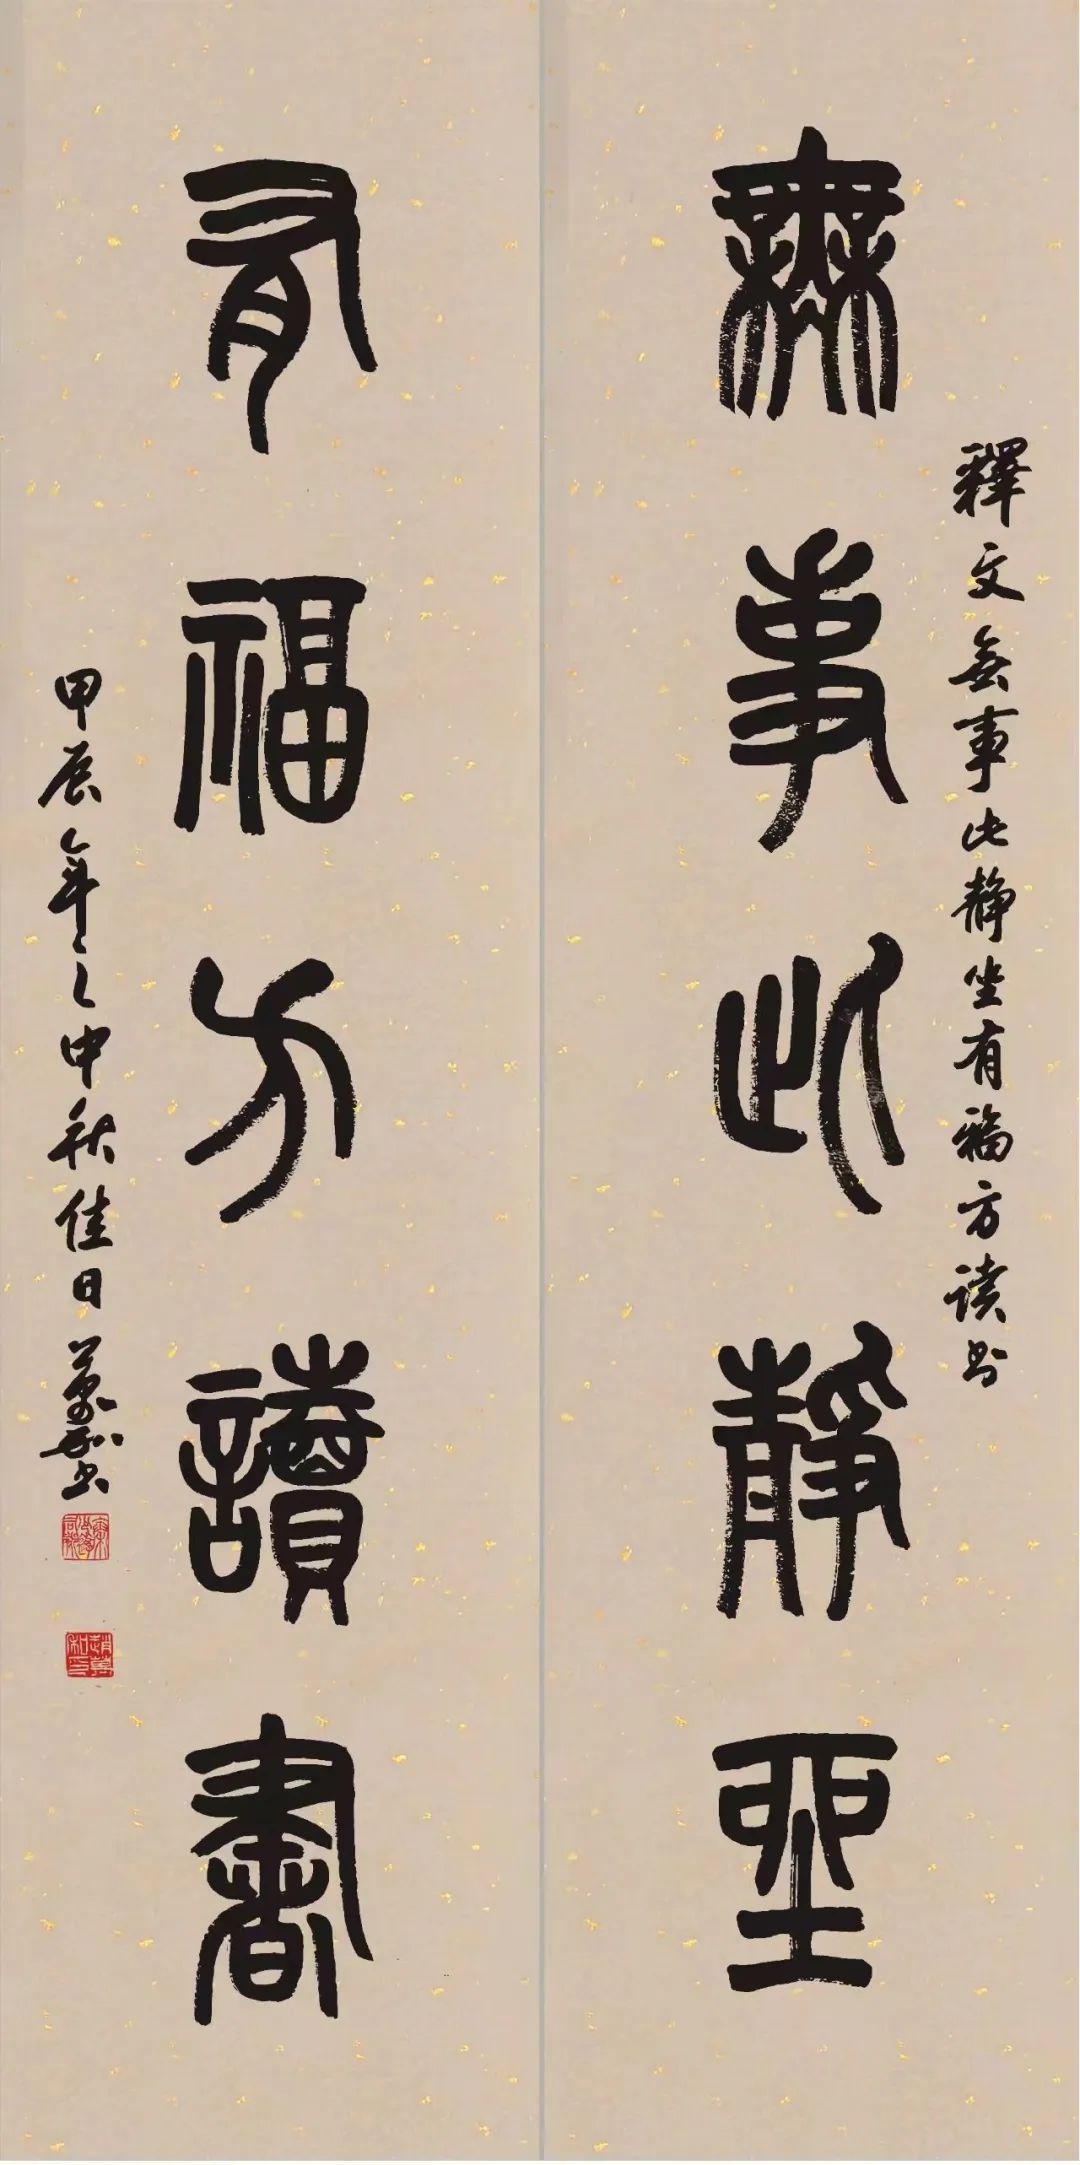 釋文無事此静坐有福方读书
無事此靜坐
有福方讀書
甲辰年之中秋佳日